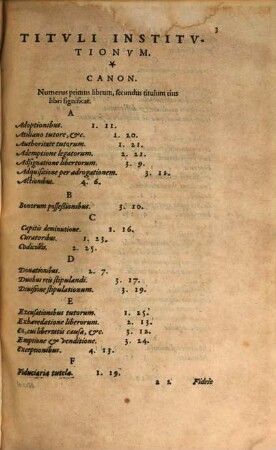 3
TITVLI INSTITV-
TIONVM.
*
CANON.
Numerus primus librum, secundus titulum eius
libri significat.
A
Adoptionibus. 1. 11.
Atiliano tutore, &c. 1. 20.
Authoritate tutorum. 1. 21.
Ademptione legatorum. 2. 21.
Adsignatione libertorum. 3. 9.
Adquisitione per adrogationem. 3. 11.
Actionibus. 4. 6.
B
Bonorum possessionibus. 3. 10.
C
Capitis deminutione. 1. 16.
Curatoribus. 1. 23.
Codicillis. 2. 25.
D
Donationibus. 2. 7.
Duobus reis stipulandi. 3. 17.
Diuisione stipulationum. 3. 19.
E
Excusationibus tutorum. 1. 25.
Exhæredatione liberorum. 2. 13.
Ei, cui libertatis causa, &c. 3. 12.
Emptione & venditione. 3. 24.
Exceptionibus. 4. 13.
F
Fiduciaria tutela. 1. 19.
a 2 Fidele